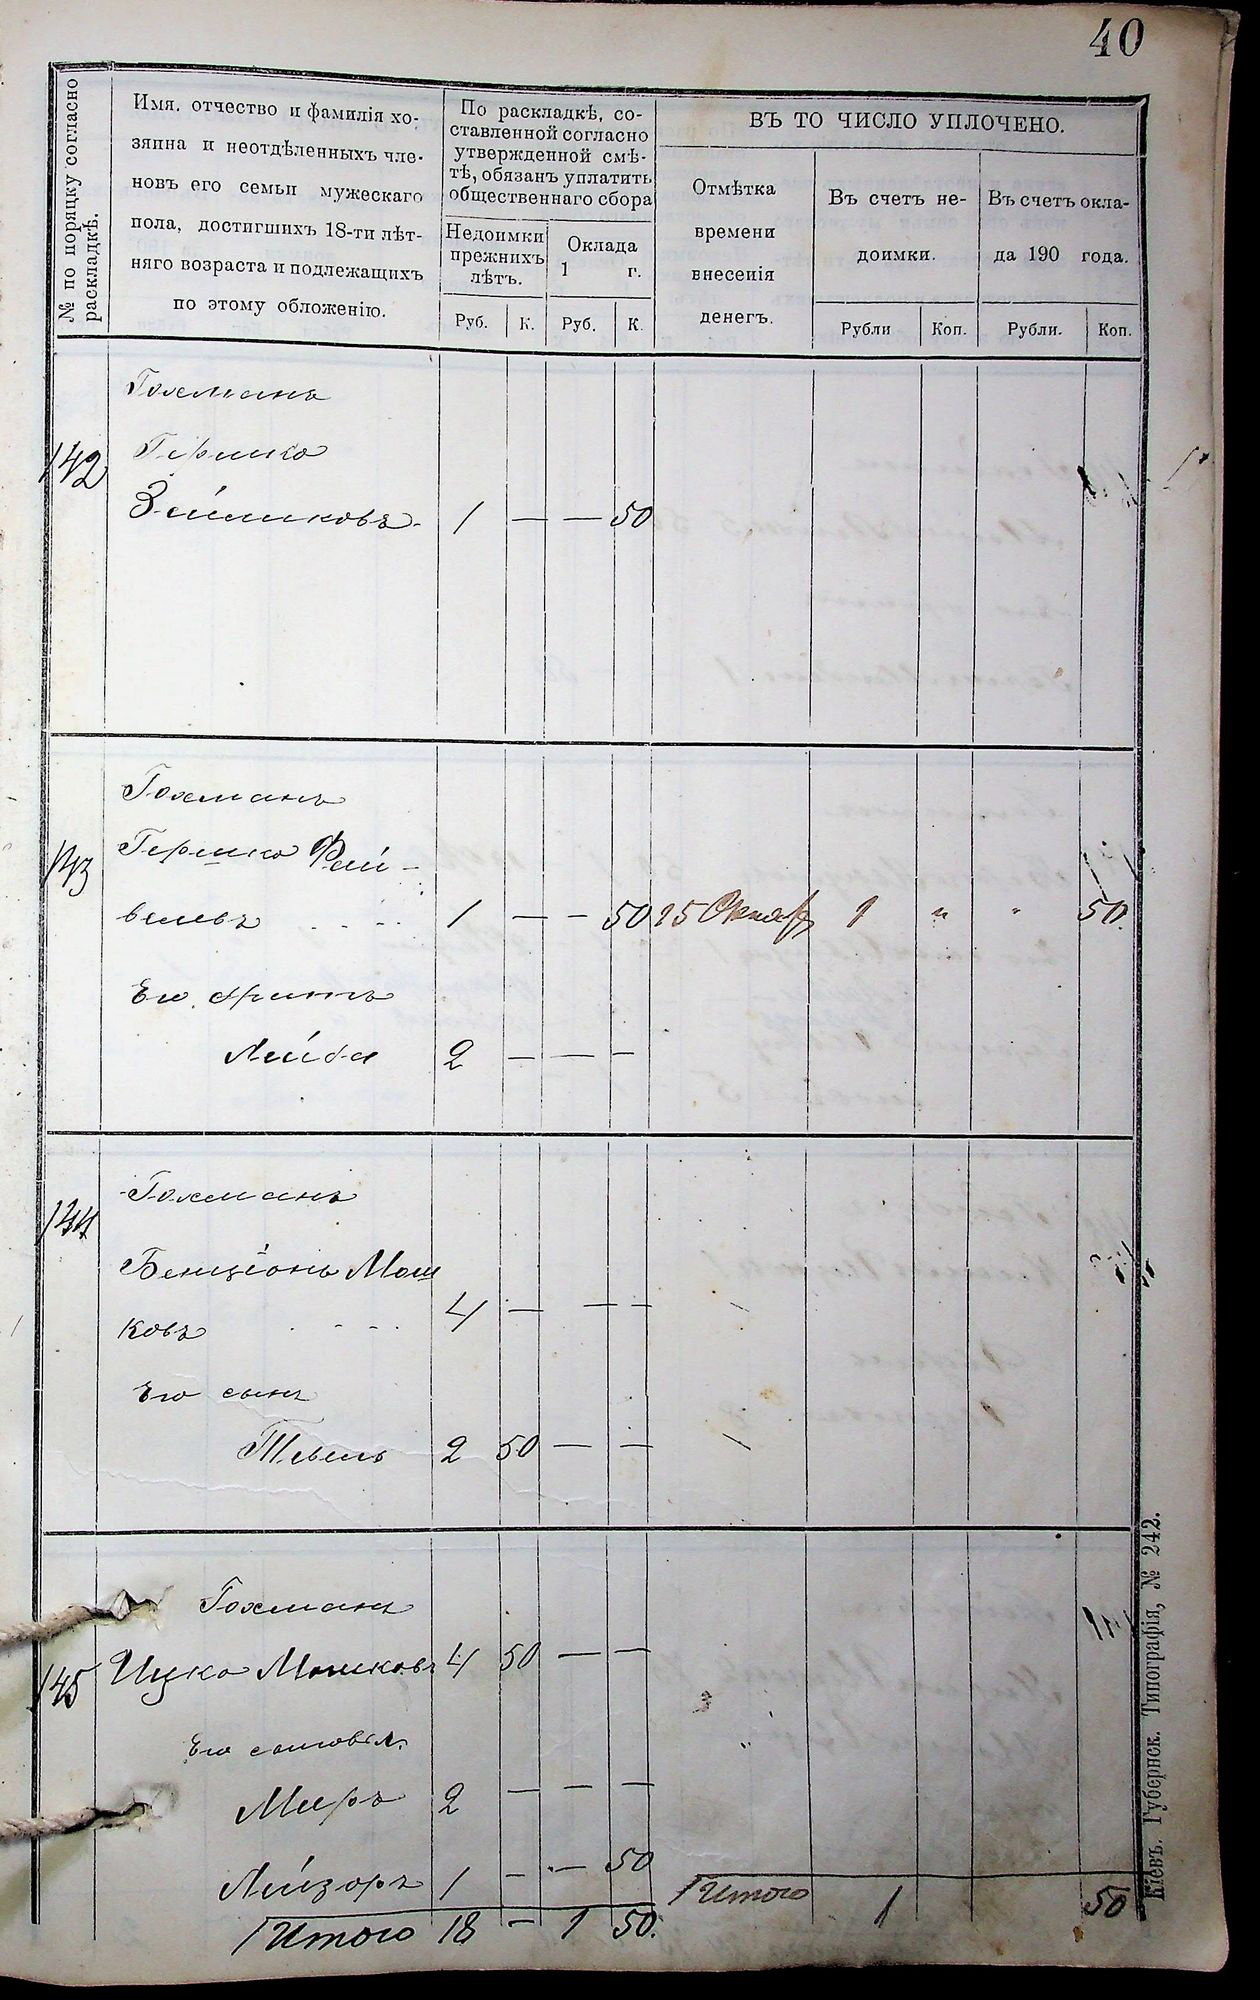 40
№ по порядку согласно раскладкѣ.
Имя, отчество и фамилія хо-
зяина и неотдѣленныхъ чле-
новъ его семьи мужескаго
пола, достигшихъ 18-ти лѣт-
няго возраста и подлежащихъ
по этому обложенію.
По раскладкѣ, со-
ставленной согласно
утвержденной смѣ-
тѣ, обязанъ уплатить
общественнаго сбора
Недоимки
прежнихъ
лѣтъ.
Оклада
1 г.
Руб. К. Руб. К.
ВЪ ТО ЧИСЛО УПЛОЧЕНО.
Отмѣтка
времени
внесенія
денегъ.
Въ счетъ не-
доимки.
Въ счетъ окла-
да 190 года.
Рубли Коп. Рубли. Коп.
Гохманъ
142 Гершко
Зейликовъ 1 — — 50
Гохманъ
143 Гершко Фай-
велевъ 1 — — 50 25 Октяб 1 " " 50.
Его братъ
Лейба 2 — — —
Гохманъ
144
Бенціонъ Мош
ковъ 4 — — —
Его сынъ
Тевель 2 50 — —
Гохманъ
145 Ицко Мошковъ 4 50 — —
Его сыновья.
Меиръ 2 — — —
Лейзоръ 1 — — 50
Итого 18 — 1 50.
Итого 1 50
Кіевъ. Губернск. Типографія, № 242.